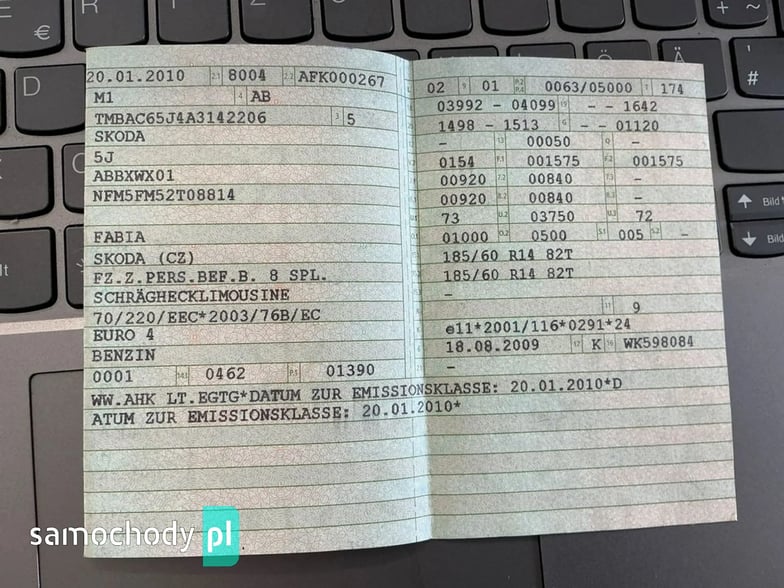 20.01.2010 2.1 8004 2.2 AFK000267
M1 4 AB
TMBAC65J4A3142206 3 5
SKODA
5J
ABBXWX01
NFM5FM52T08814
FABIA
SKODA (CZ)
FZ.Z.PERS.BEF.B. 8 SPL.
SCHRÄGHECKLIMOUSINE
70/220/EEC*2003/76B/EC
EURO 4
BENZIN
0001 14.1 0462 P.1 01390
02 9 01 P.2 P.4 0063/05000 T 174
03992 - 04099 19 - - 1642
1498 - 1513 G - - 01120
- 13 00050 Q -
0154 F.1 001575 F.2 001575
00920 7.2 00840 7.3 -
00920 8.2 00840 8.3 -
73 U.2 03750 U.3 72
01000 O.2 0500 S.1 005 S.2 -
185/60 R14 82T
185/60 R14 82T
-
11 9
e11*2001/116*0291*24
18.08.2009 17 K 16 WK598084
-
WW.AHK LT.EGTG*DATUM ZUR EMISSIONSKLASSE: 20.01.2010*D
ATUM ZUR EMISSIONSKLASSE: 20.01.2010*
samochody pl
E
€
D
Ö
Ä
+ ~
'
#
Bild
Bild